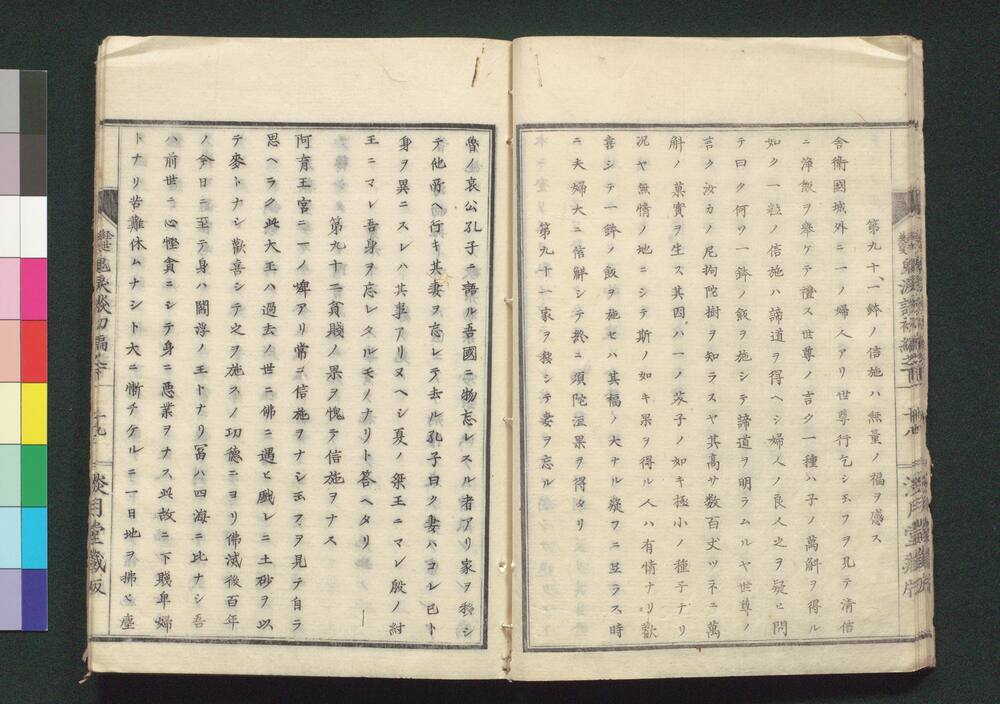 第九十、一鉢ノ信施ハ無量ノ福ヲ感ス
舎衛國城外ニ一ノ婦人アリ世尊行乞シ玉フヲ見テ清信
ニ浄飯ヲ奉ケテ禮ス世尊ノ言ク一種ハ子ノ萬斛ヲ得ル
如ク一粒ノ信施ハ諦道ヲ得ヘシ婦人ノ良人之ヲ疑ヒ問
テ曰ク何ソ一鉢ノ飯ヲ施シテ諦道ヲ明ラムルヤ世尊ノ
言ク汝カノ尼拘陀樹ヲ知ラスヤ其高サ数百丈ツネニ萬
斛ノ菓實ヲ生ス其因ハ一ノ芥子ノ如キ極小ノ種子ナリ
况ヤ無情ノ地ニシテ斯ノ如キ果ヲ得ル人ハ有情ナリ歡
喜シテ一鉢ノ飯ヲ施セハ其福ノ大ナル疑フニ足ラス時
ニ夫婦大ニ信解シテ終ニ須陀洹果ヲ得タリ
第九十一家ヲ移シテ妻ヲ忘ル
魯ノ哀公孔子ニ語ル吾國ニ物忘レスル者アリ家ヲ移シ
テ他所ヘ行キ其妻ヲ忘レテ去ル孔子曰ク妻ハコレ已ト
身ヲ異ニスレハ其事アリヌヘシ夏ノ桀王ニマレ殷ノ紂
王ニマレ吾身ヲ忘レタルモノナリト答ヘタリ
第九十二貧賤ノ果ヲ愧テ信施ヲナス
阿育王宮ニ一ノ婢アリ常ニ信施ヲナシ玉フヲ見テ自ラ
思ヘラク此大王ハ過去ノ世ニ佛ニ遇ヒ戯レニ土砂ヲ以
テ麥トナシ歡喜シテ之ヲ施スノ功德ニヨリ佛滅後百年
ノ今日ニ至テ身ハ閻浮ノ王トナリ冨ハ四海ニ比ナシ吾
ハ前世ニ心慳貪ニシテ身ニ悪業ヲナス此故ニ下賤卑婦
トナリ苦難休ムナシト大ニ慚チケルニ一日地ヲ拂ヒ塵
淡月堂藏版